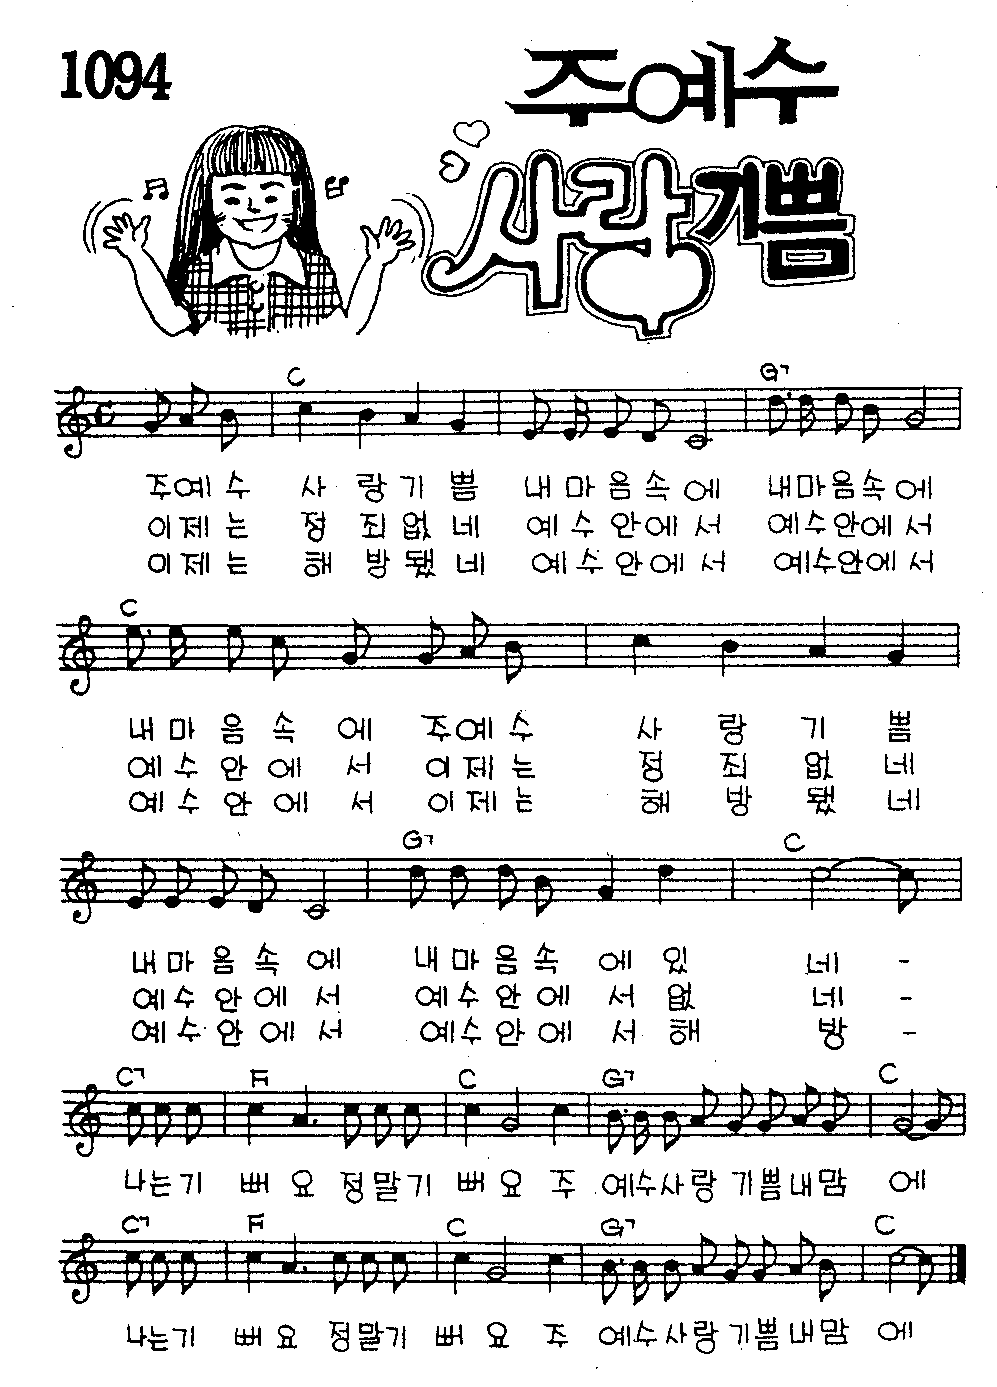 1094
주예수
사랑기쁨
C G7
주예수 사랑기쁨 내마음속에 내마음속에
이제는 정죄없네 예수안에서 예수안에서
이제는 해방됐네 예수안에서 예수안에서
C
내마음속에 주예수 사랑기쁨
예수안에서 이제는 정죄없네
예수안에서 이제는 해방됐네
G7 C
내마음속에 내마음속에있네-
예수안에서 예수안에서없네-
예수안에서 예수안에서해방-
C7 F C G7 C
나는기뻐요 정말기뻐요 주예수사랑기쁨내맘에
C7 F C G7 C
나는기뻐요 정말기뻐요 주예수사랑기쁨내맘에